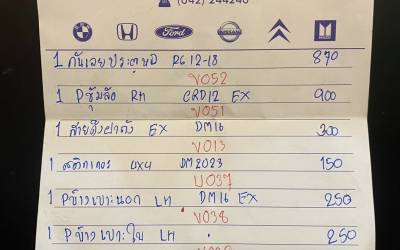 ☎ (042) 244240
Ford NISSAN
1 กันเลยประตู RG12-18 870
V052
1 Pซุ้มล้อ RH CRD12 EX 900
V051
1 สายดึงฝาถัง EX DM16 300
V013
1 สติกเกอร์ 4X4 DM2023 150
U037
1 Pข้างเบาะนอก LH DM16 EX 250
V038
1 Pข้างเบาะใน LH 250